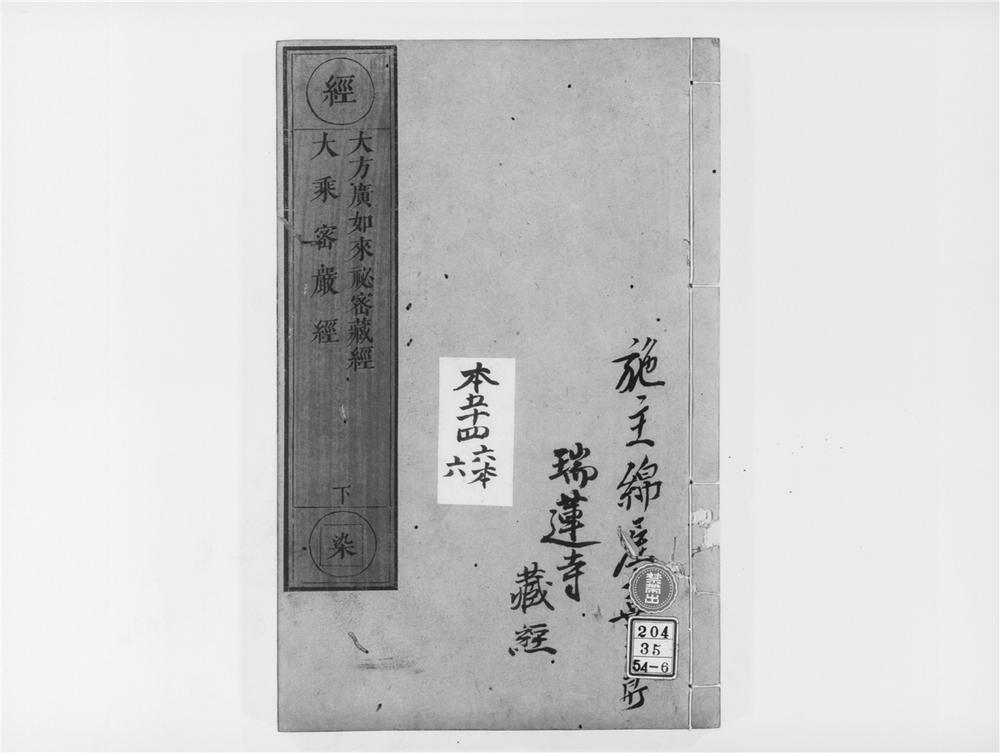 經
大方廣如來祕密藏經
大乘密嚴經
下
染
本五十四
六本
六
施主綿屋
瑞蓮寺
藏經
禁帶出
204
35
54-6